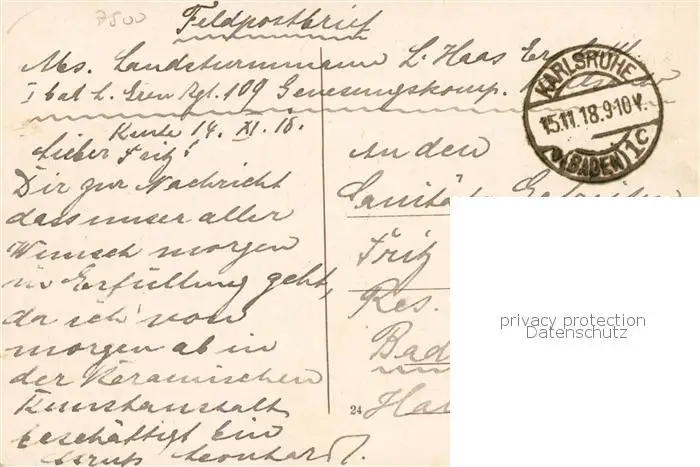 7500
Feldpostbrief
Abs. Landsturmmann L. Haas
I bat L. Gren Rgt. 109 Genesungskomp.
KARLSRUHE
15.11.18.9-10V.
(BADEN) 1c
Karlsr. 14. XI. 18.
Lieber Fritz!
Dir zur Nachricht
dass unser aller
Wunsch morgen
in Erfüllung geht,
da ich von
morgen ab in
der Keramischen
Kunstanstalt
beschäftigt bin
Gruß Leonhard.
An den
Sanitäts Gefreiten
Fritz
Res.
Bad
24
privacy protection
Datenschutz